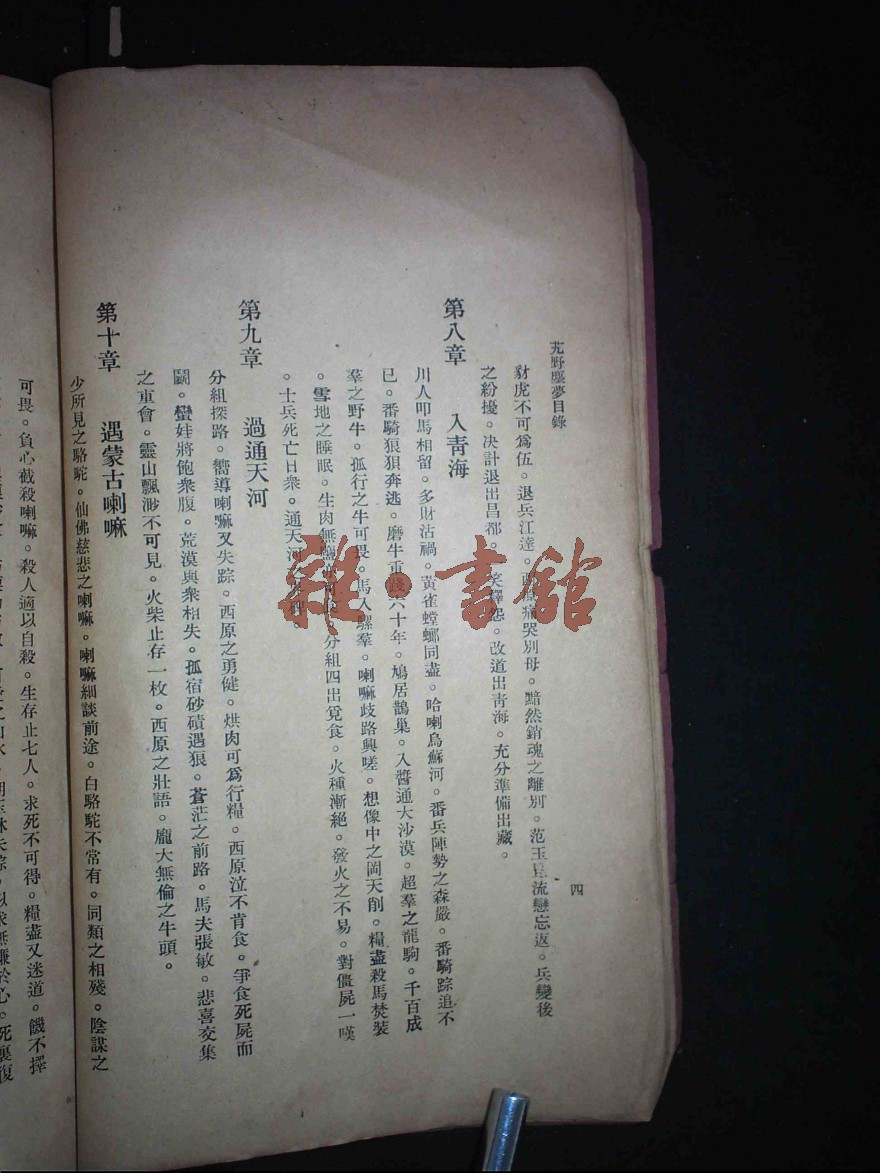 艽野塵夢目錄
四
豺虎不可爲伍。退兵江達。西原痛哭別母。黯然銷魂之離別。范玉昆流戀忘返。兵變後
之紛擾。决計退出昌都。笑釋怨。改道出靑海。充分準備出藏。
第八章 入靑海
川人叩馬相留。多財沽禍。黃雀螳螂同盡。哈喇烏蘇河。番兵陣勢之森嚴。番騎踪追不
已。番騎狼狽奔逃。磨牛重踐六十年。鳩居鵲巢。入醬通大沙漠。超羣之龍駒。千百成
羣之野牛。孤行之牛可畏。馬入騾羣。喇嘛歧路興嗟。想像中之岡天削。糧盡殺馬焚裝
。雪地之睡眠。生肉無鹽 分組四出覓食。火種漸絕。發火之不易。對僵屍一嘆
。士兵死亡日衆。通天河之 碑。
第九章 過通天河
分組探路。嚮導喇嘛又失踪。西原之勇健。烘肉可爲行糧。西原泣不肯食。爭食死屍而
鬭。蠻娃將飽衆腹。荒漠與衆相失。孤宿砂磧遇狼。蒼茫之前路。馬夫張敏。悲喜交集
之重會。靈山飄渺不可見。火柴止存一枚。西原之壯語。龐大無倫之牛頭。
第十章 遇蒙古喇嘛
少所見之駱駝。仙佛慈悲之喇嘛。喇嘛細談前途。白駱駝不常有。同類之相殘。陰謀之
可畏。負心截殺喇嘛。殺人適以自殺。生存止七人。求死不可得。糧盡又迷道。饑不擇
雜·書館